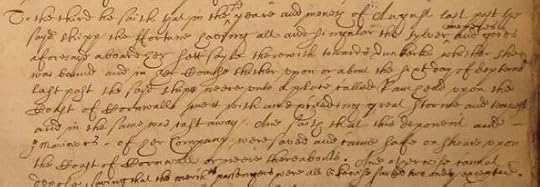 To the third he saith that in the yeare and moneth of August last past the
said shipp the Fortune haveing all and singular the sylver and goods
aforesaid aboard her sett sayle therewith towards Dunkerke whither shee
was bound and in her Course thither upon or about the first day of September
last past the said shipp neere unto a place called upon the
Coast of Cornwall mett with and great Storme and tempest
and in the same was cast away. And saith that this deponent and
Marriners of her Company were saved and came safe on shoare upon
the Coast of Cornwall or neere thereabouts. And otherwise cannot
depose saving that the passengers were all likewise saved two only excepted